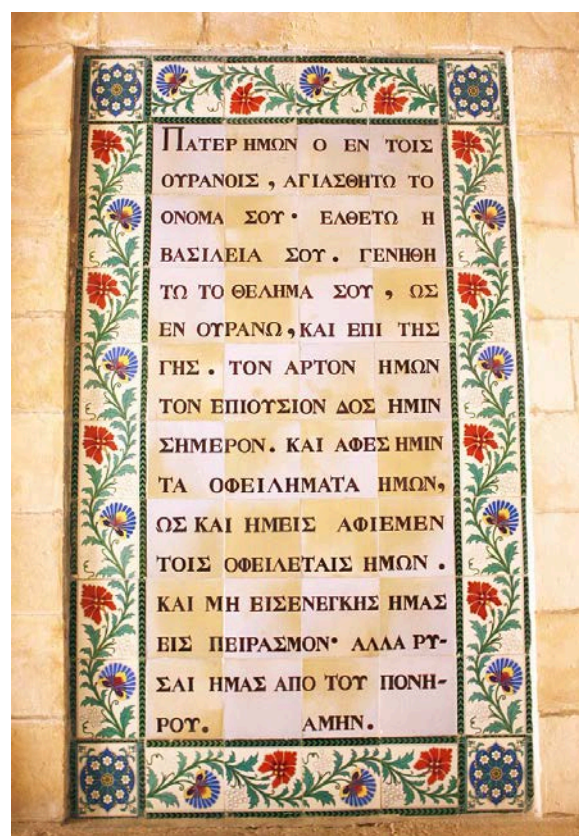 ΠΑΤΕΡ ΗΜΩΝ Ο ΕΝ ΤΟΙΣ
ΟΥΡΑΝΟΙΣ , ΑΓΙΑΣΘΗΤΩ ΤΟ
ΟΝΟΜΑ ΣΟΥ · ΕΛΘΕΤΩ Η
ΒΑΣΙΛΕΙΑ ΣΟΥ . ΓΕΝΗΘΗ
ΤΩ ΤΟ ΘΕΛΗΜΑ ΣΟΥ , ΩΣ
ΕΝ ΟΥΡΑΝΩ , ΚΑΙ ΕΠΙ ΤΗΣ
ΓΗΣ . ΤΟΝ ΑΡΤΟΝ ΗΜΩΝ
ΤΟΝ ΕΠΙΟΥΣΙΟΝ ΔΟΣ ΗΜΙΝ
ΣΗΜΕΡΟΝ. ΚΑΙ ΑΦΕΣ ΗΜΙΝ
ΤΑ ΟΦΕΙΛΗΜΑΤΑ ΗΜΩΝ,
ΩΣ ΚΑΙ ΗΜΕΙΣ ΑΦΙΕΜΕΝ
ΤΟΙΣ ΟΦΕΙΛΕΤΑΙΣ ΗΜΩΝ .
ΚΑΙ ΜΗ ΕΙΣΕΝΕΓΚΗΣ ΗΜΑΣ
ΕΙΣ ΠΕΙΡΑΣΜΟΝ· ΑΛΛΑ ΡΥ-
ΣΑΙ ΗΜΑΣ ΑΠΟ ΤΟΥ ΠΟΝΗ-
ΡΟΥ. ΑΜΗΝ.